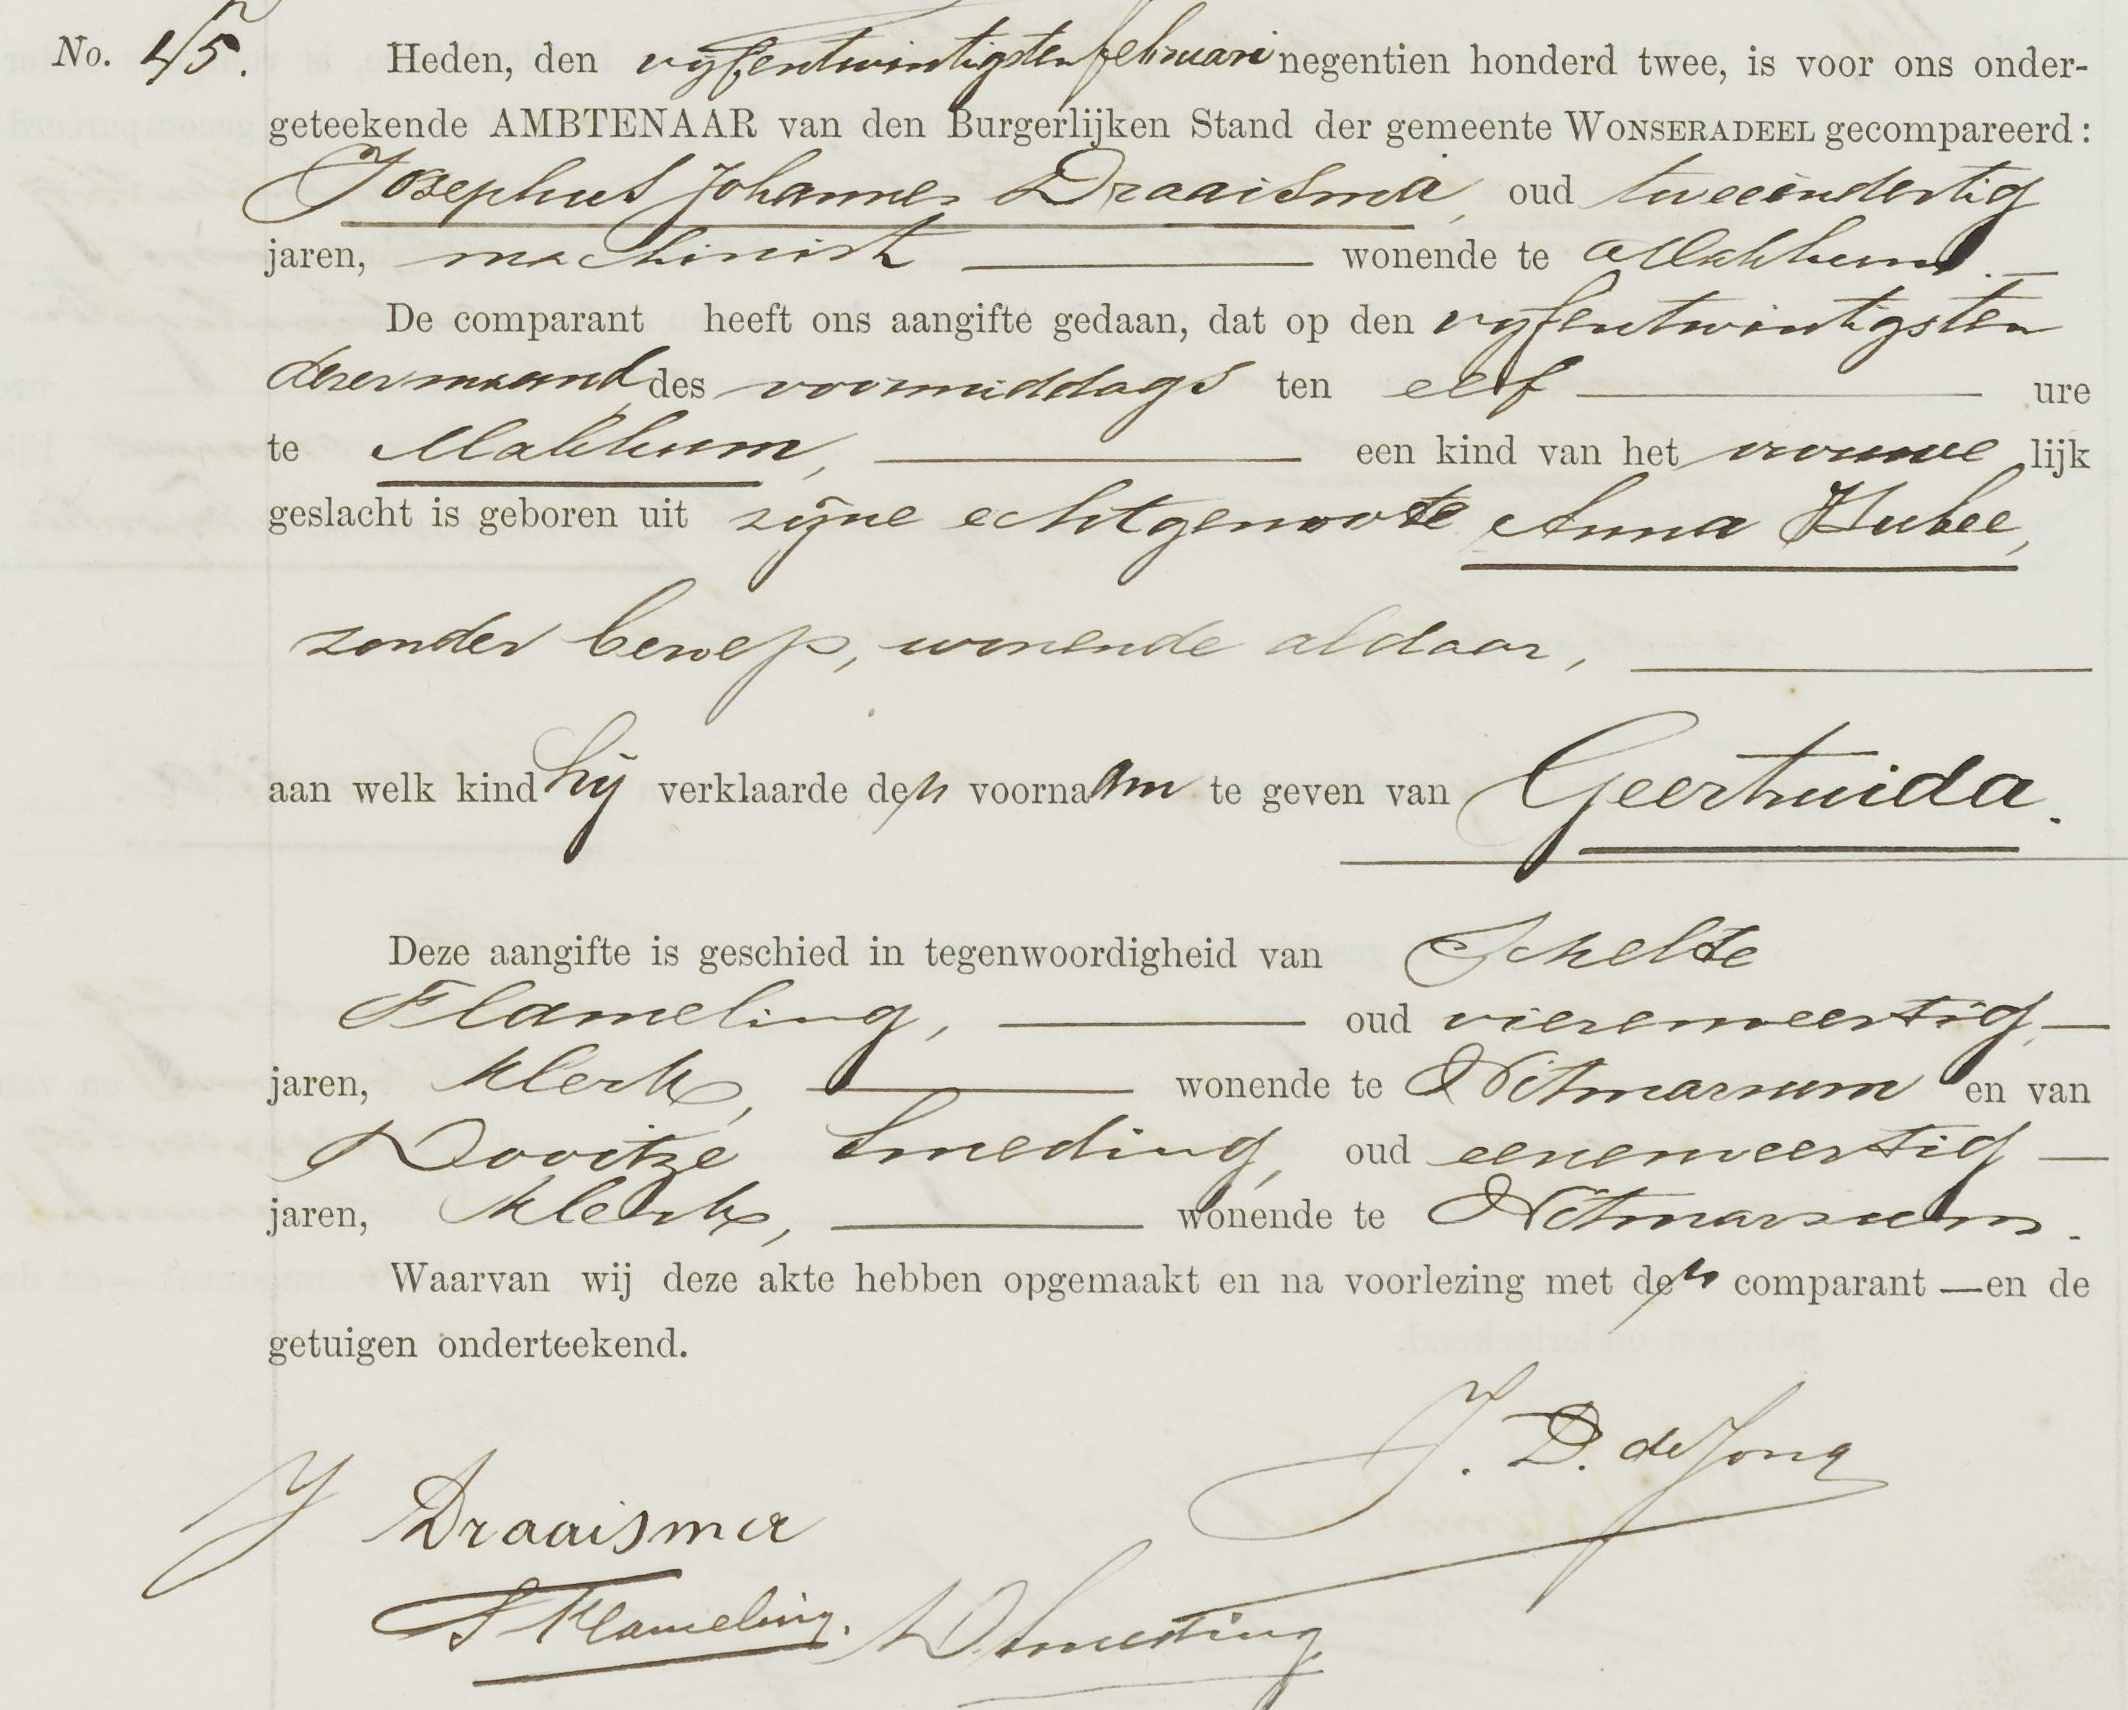 No. 45. Heden, den vyfentwintigsten februari negentien honderd twee, is voor ons onder-
geteekende AMBTENAAR van den Burgerlijken Stand der gemeente WONSERADEEL gecompareerd:
Josephus Johannes Draaisma, oud tweeëndertig
jaren, machinist wonende te Makkum.
De comparant heeft ons aangifte gedaan, dat op den vyfentwintigsten
dezer maand des voormiddags ten elf ure
te Makkum, een kind van het vrouwe lijk
geslacht is geboren uit zijne echtgenoote Anna
zonder beroep, wonende aldaar,
aan welk kind hij verklaarde den voornaam te geven van Geertruida.
Deze aangifte is geschied in tegenwoordigheid van Schelte
Flameling, oud vierenveertig
jaren, klerk, wonende te Witmarsum en van
Dooitze Smeding, oud eenenveertig
jaren, klerk, wonende te Witmarsum.
Waarvan wij deze akte hebben opgemaakt en na voorlezing met den comparant en de
getuigen onderteekend.
J. D. de Jong
J Draaisma
S Flameling. D Smeding